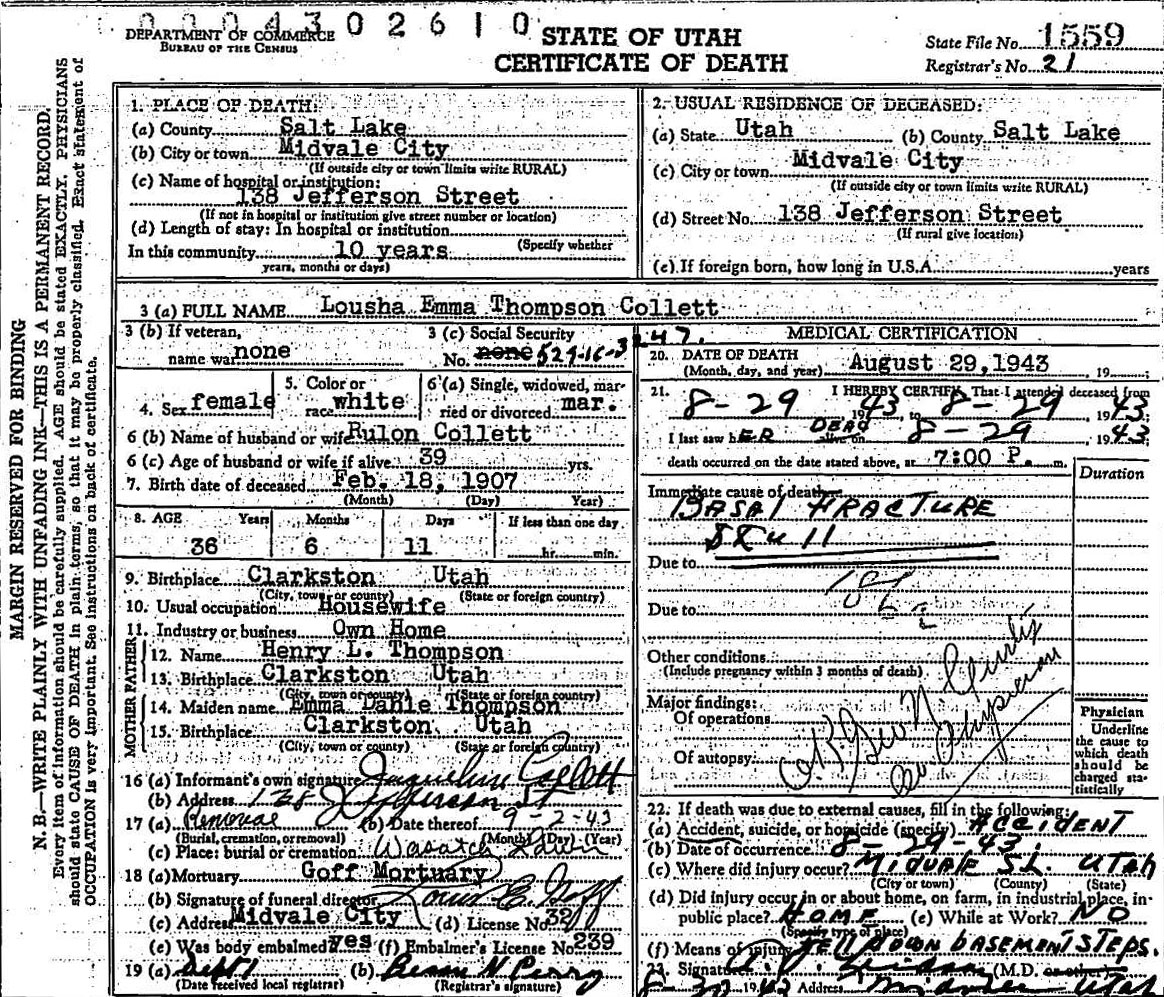 0004302610
DEPARTMENT OF COMMERCE
BUREAU OF THE CENSUS
STATE OF UTAH
CERTIFICATE OF DEATH
State File No. 1559
Registrar's No. 21
MARGIN RESERVED FOR BINDING
N. B.—WRITE PLAINLY WITH UNFADING INK—THIS IS A PERMANENT RECORD.
Every item of information should be carefully supplied. AGE should be stated EXACTLY. PHYSICIANS
should state CAUSE OF DEATH in plain terms, so that it may be properly classified. Exact statement of
OCCUPATION is very important. See instructions on back of certificate.
1. PLACE OF DEATH:
(a) County Salt Lake
(b) City or town Midvale City
(If outside city or town limits write RURAL)
(c) Name of hospital or institution:
138 Jefferson Street
(If not in hospital or institution give street number or location)
(d) Length of stay: In hospital or institution
(Specify whether
In this community 10 years
years, months or days)
2. USUAL RESIDENCE OF DECEASED:
(a) State Utah (b) County Salt Lake
(c) City or town Midvale City
(If outside city or town limits write RURAL)
(d) Street No. 138 Jefferson Street
(If rural give location)
(e) If foreign born, how long in U.S.A. years
3 (a) FULL NAME Lousha Emma Thompson Collett
3 (b) If veteran,
name war none
3 (c) Social Security
No. none 529-16-3247.
4. Sex female
5. Color or
race white
6 (a) Single, widowed, mar-
ried or divorced mar.
6 (b) Name of husband or wife Rulon Collett
6 (c) Age of husband or wife if alive 39 yrs.
7. Birth date of deceased Feb. 18, 1907
(Month) (Day) Year)
8. AGE Years Months Days If less than one day
36 6 11 hr. min.
9. Birthplace Clarkston Utah
(City, town or county) (State or foreign country)
10. Usual occupation Housewife
11. Industry or business Own Home
FATHER
12. Name Henry L. Thompson
13. Birthplace Clarkston Utah
(City, town or county) (State or foreign country)
MOTHER
14. Maiden name Emma Dahle Thompson
15. Birthplace Clarkston Utah
(City, town or county) (State or foreign country)
16 (a) Informant's own signature Jaqueline Collett
(b) Address 138 Jefferson St
17 (a) Removal (b) Date thereof 9-2-43
(Burial, cremation, or removal) (Month) (Day) (Year)
(c) Place: burial or cremation Wasatch Lawn
18 (a) Mortuary Goff Mortuary
(b) Signature of funeral director Louis E. Goff
(c) Address Midvale City (d) License No. 32
(e) Was body embalmed? yes (f) Embalmer's License No. 239
19 (a) Sept 1 (b) N. Perry
(Date received local registrar) (Registrar's signature)
MEDICAL CERTIFICATION
20. DATE OF DEATH
(Month, day, and year) August 29, 1943 , 19
21. I HEREBY CERTIFY, That I attended deceased from
8-29 1943, to 8-29 1943
I last saw hER DEAD alive on 8-29 1943
death occurred on the date stated above, at 7:00 P. m.
Duration
Immediate cause of death
BASAL FRACTURE
SKull
Due to
Due to
Other conditions
(Include pregnancy within 3 months of death)
Major findings:
Of operations
Of autopsy:
Physician
Underline
the cause to
which death
should be
charged sta-
tistically
22. If death was due to external causes, fill in the following:
(a) Accident, suicide, or homicide (specify) ACCIDENT
(b) Date of occurrence 8-29-43.
(c) Where did injury occur? MIDVALE S.L. UTAH
(City or town) (County) (State)
(d) Did injury occur in or about home, on farm, in industrial place, in-
public place? HOME (e) While at Work? NO
(Specify type of place)
(f) Means of injury FELL DOWN BASEMENT STEPS.
23. Signature (M.D. or other)
8-30 1943 Address Midvale Utah